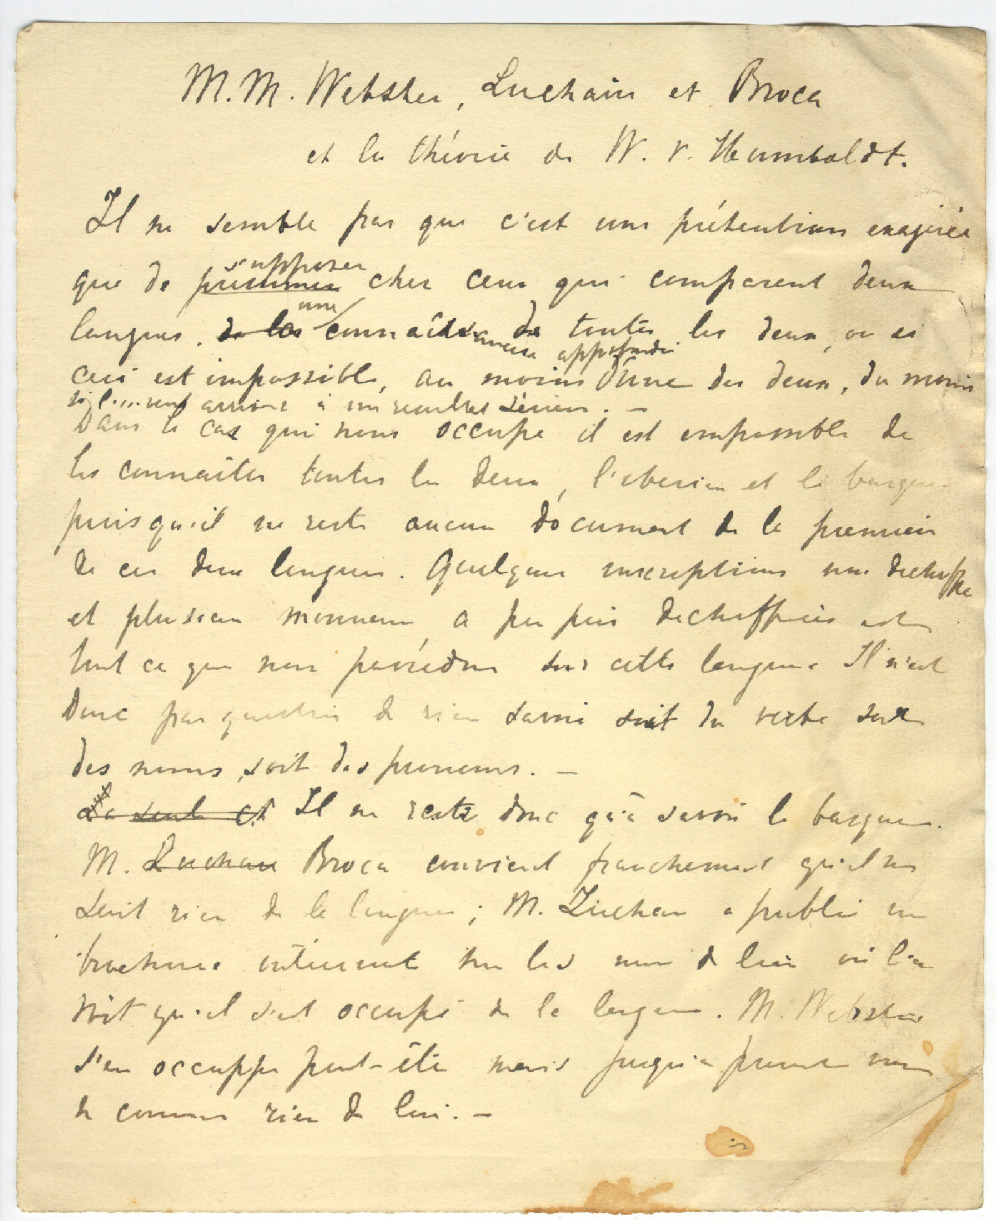 M.M. Webster, Luchaire et Broca
et la théorie de W. v. Humboldt.
Il ne semble pas que c'est une prétention exagérée
que de présumer supposer chez ceux qui comparent deux
langues, de les une connaissance approfondie de toutes les deux, ou si
ceci est impossible, au moins d'une des deux, du moins
si l'on veut arriver à un résultat sérieux. –
Dans le cas qui nous occupe il est impossible de
les connaître toutes les deux, l'iberien et le basque
puisqu'il ne reste aucun document de la première
de ces deux langues. Quelques inscriptions non dechiffrées
et plusieurs monnaies, a peu près dechiffrées est
tout ce que nous possédons sur cette langue. Il n'est
donc pas question de rien savoir soit du verbe soit
des noms, soit des pronoms. –
La seule c. Il ne reste donc qu'à savoir le basque.
M. Luchaire Broca convient franchement qu'il ne
sait rien de la langue; M. Luchaire a publié une
brochure intitulée sur les noms de lieu où l'on
voit qu'il s'est occupé de la langue. M. Webster
s'en occuppe peut-être mais jusqu'à présent nous
ne connaissons rien de lui. –